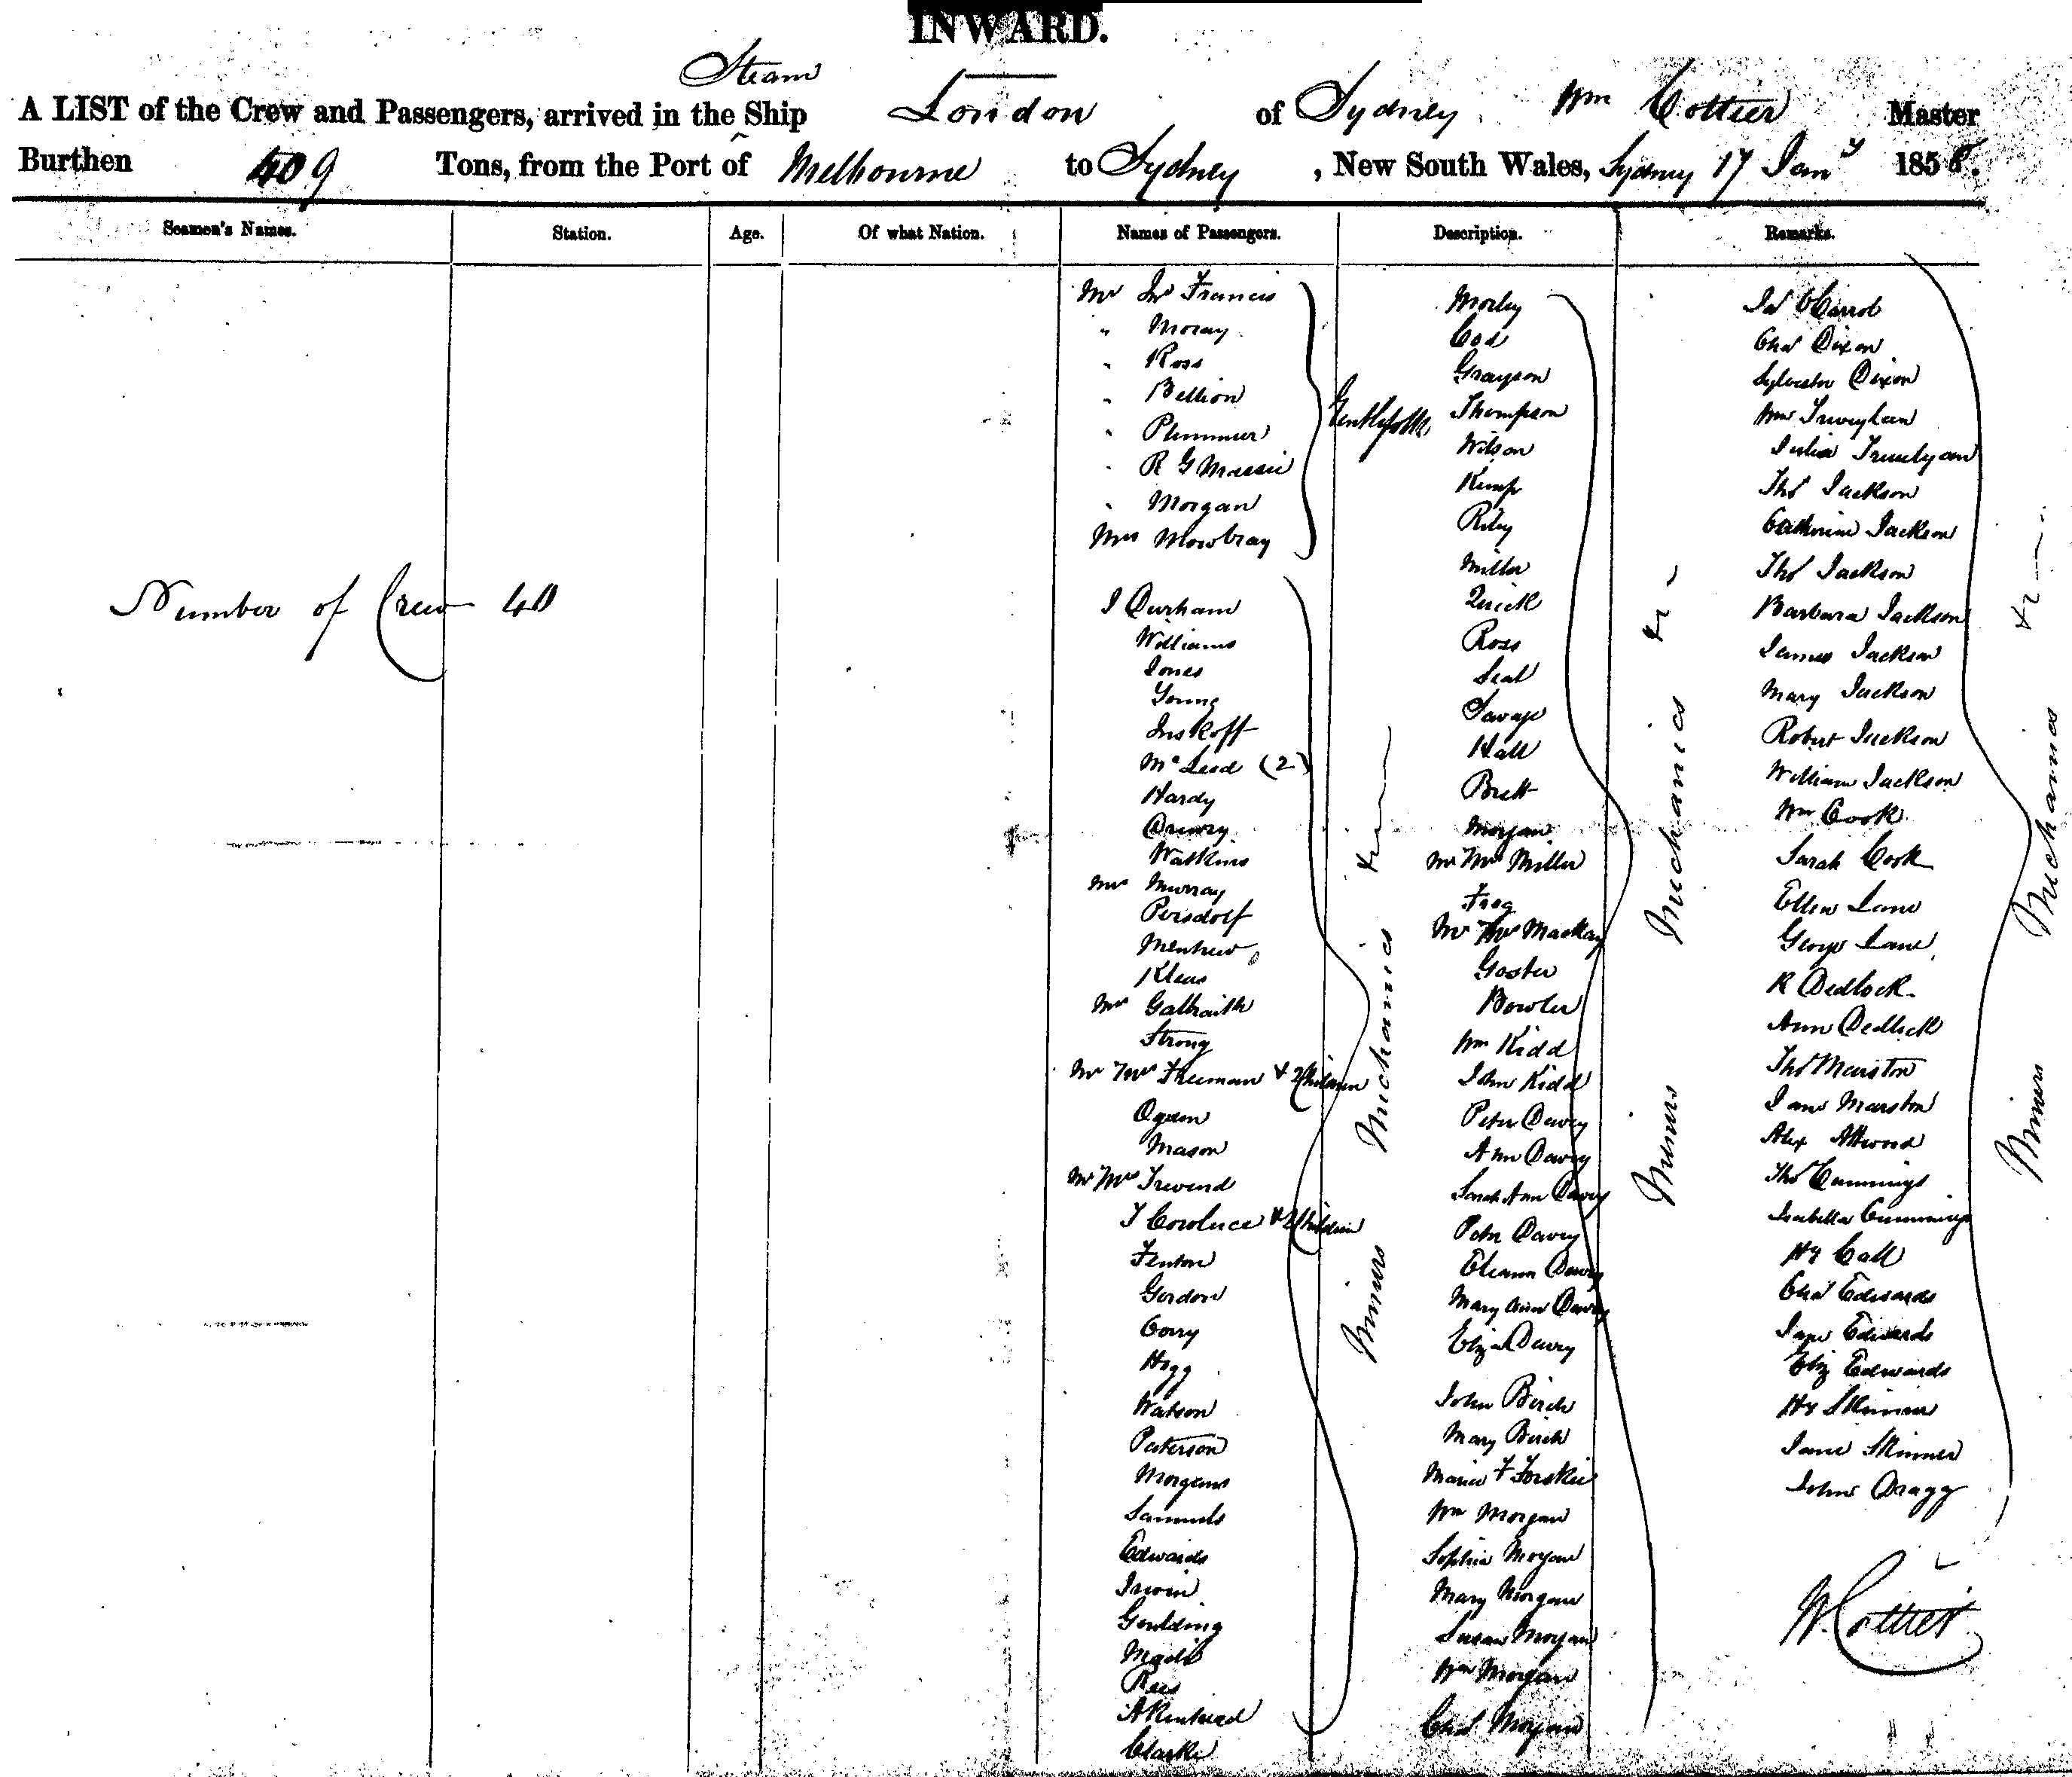 INWARD.
Steam
A LIST of the Crew and Passengers, arrived in the Ship London of Sydney Wm Cottier Master
Burthen 409 Tons, from the Port of Melbourne to Sydney, New South Wales, Sydney 17 Jany 1858.
Seamen's Names. Station. Age. Of what Nation. Names of Passengers. Description. Remarks.
Number of Crew 40
Mr Jno Francis
" Moray
" Ross
" Bellion
" Plummer
" R G Massie
" Morgan
Mrs Mowbray
Gentlefolks
J Durham
Williams
Jones
Young
Inskoff
McLeod (2)
Hardy
Drewry
Watkins
Mrs Murray
Persdorf
Klaus
Mrs Galbraith
Strong
Mr Mrs Freeman & 2 Children
Ogden
Mason
Mr Mrs
& 2 Children
Fenton
Gordon
Corry
Hogg
Watson
Paterson
Morgans
Samuels
Edwards
Irwin
Goulding
Rees
A Kinhead
Clarke
Miners Mechanics &c
Morley
Cod
Grayson
Thompson
Wilson
Kemp
Riley
Miller
Quick
Ross
Seal
Savage
Hall
Brett
Morgan
Mr Mrs Miller
Mr Mrs Mackay
Goster
Bowler
Wm Kidd
John Kidd
Peter Davey
Ann Davey
Sarah Ann Davey
Peter Davey
Eleanor Davey
Mary Ann Davey
Eliza Davey
John Birch
Mary Birch
Maria F Forskie
Wm Morgan
Sophia Morgan
Mary Morgan
Susan Morgan
Wm Morgan
Chas Morgan
Miners Mechanics &c
Jas OCarrol
Chas Dixon
Sylvester Dixon
Wm Trevylean
Julia Trevelyan
Thos Jackson
Catherine Jackson
Thos Jackson
Barbara Jackson
James Jackson
Mary Jackson
Robert Jackson
William Jackson
Wm Cook
Sarah Cook
Ellen Lane
George Lane
R Dedlock
Ann Dedlick
Thos Marston
Jane Marston
Alex Attwood
Thos Cummings
Isabella Cummings
Hy Call
Chas Edwards
Jane Edwards
Eliz Edwards
Hy Skinner
Jane Skinner
John Dragg
Miners Mechanics &c
W Cottier